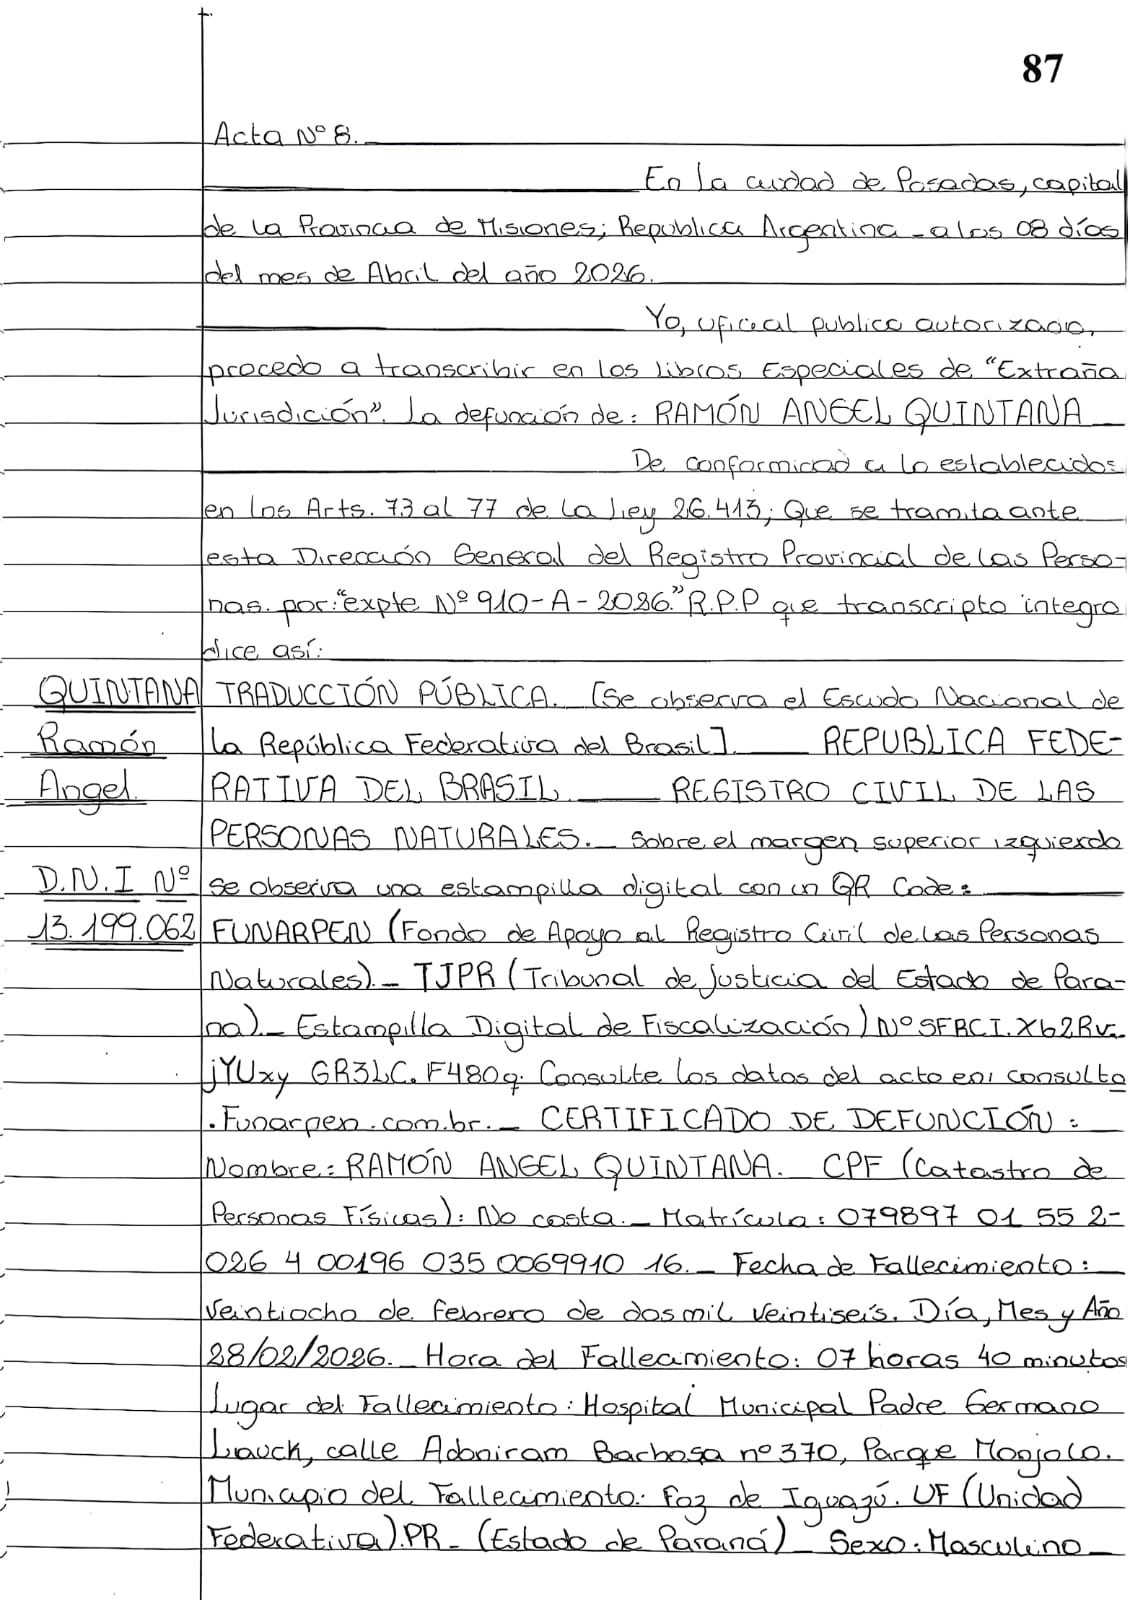 87
Acta Nº 8.
En la ciudad de Posadas, capital
de la Provincia de Misiones; Republica Argentina - a los 08 días
del mes de Abril del año 2026.
Yo, oficial publico autorizado,
procedo a transcribir en los libros Especiales de "Extraña
Jurisdición". La defunción de: RAMÓN ANGEL QUINTANA
De conformidad a lo establecidos
en los Arts. 73 al 77 de la Ley 26.413; Que se tramita ante
esta Dirección General del Registro Provincial de las Perso-
nas. por: "expte Nº 910-A-2026." R.P.P que transcripto integro
dice así:
QUINTANA TRADUCCIÓN PÚBLICA. [Se observa el Escudo Nacional de
Ramón la República Federativa del Brasil]. REPUBLICA FEDE-
Angel. RATIVA DEL BRASIL. REGISTRO CIVIL DE LAS
PERSONAS NATURALES.- Sobre el margen superior izquierdo
D.N.I Nº se observa una estampilla digital con un QR Code:
13.199.062 FUNARPEN (Fondo de Apoyo al Registro Civil de las Personas
Naturales).- TJPR (Tribunal de Justicia del Estado de Para-
na).- Estampilla Digital de Fiscalización) Nº SFRCI.X62Rv.
jYUxy GR3LC.F480q. Consulte los datos del acto en: consulta
.Funarpen.com.br.- CERTIFICADO DE DEFUNCIÓN:
Nombre: RAMÓN ANGEL QUINTANA. CPF (Catastro de
Personas Físicas): No costa.- Matrícula: 079897 01 55 2-
026 4 00196 035 0069910 16.- Fecha de Fallecimiento:
Veintiocho de febrero de dos mil veintiseís. Día, Mes y Año
28/02/2026.- Hora del Fallecimiento: 07 horas 40 minutos
Lugar del Fallecimiento: Hospital Municipal Padre Germano
Lauck, calle Adoniram Barbosa nº 370, Parque Monjolo.
Municipio del Fallecimiento: Foz de Iguazú. UF (Unidad
Federativa).PR- (Estado de Paraná) - Sexo: Masculino -